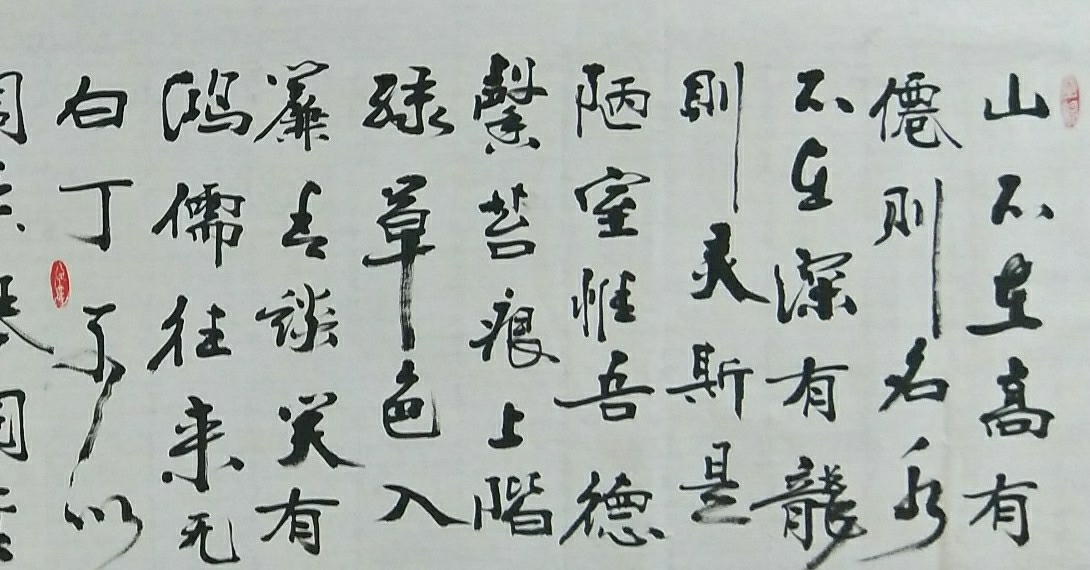 山不在高有
僊则名水
不在深有龍
則灵斯是
陋室惟吾德
馨苔痕上階
緑草色入
簾青談笑有
鴻儒往来无
白丁可以